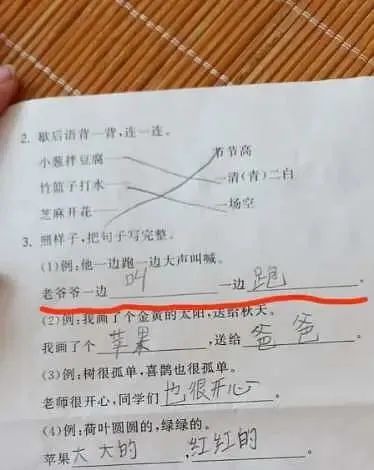 2. 歇后语背一背,连一连。
小葱拌豆腐 节节高
竹篮子打水 一清(青)二白
芝麻开花 一场空
3. 照样子,把句子写完整。
(1)例:他一边跑一边大声叫喊。
老爷爷一边叫一边跑。
(2)例:我画了个金黄的太阳,送给秋天。
我画了个苹果,送给爸爸。
(3)例:树很孤单,喜鹊也很孤单。
老师很开心,同学们也很开心。
(4)例:荷叶圆圆的,绿绿的。
苹果大大的,红红的